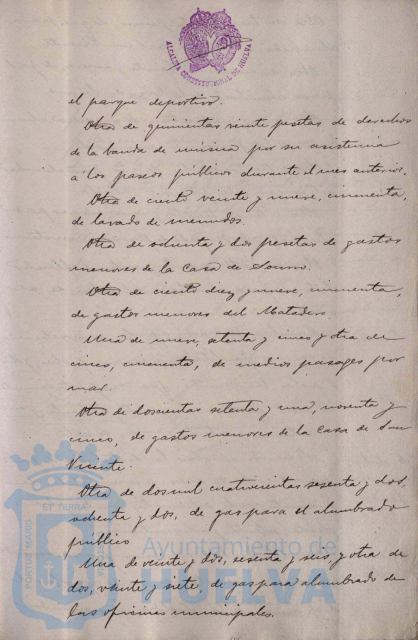 ALCALDIA CONSTITUCIONAL DE HUELVA
el parque deportivo.
Otra de quinientas veinte pesetas de derechos
de la banda de música por su asistencia
a los paseos públicos durante el mes anterior.
Otra de ciento veinte y nueve, cincuenta,
de lavado de menudos.
Otra de ochenta y dos pesetas de gastos
menores de la Casa de Socorro.
Otra de ciento diez y nueve, cincuenta,
de gastos menores del Matadero.
Una de nueve, setenta y cinco y otra de
cinco, cincuenta, de medios pasages por
mar.
Otra de doscientas setenta y una, noventa y
cinco, de gastos menores de la Casa de San
Vicente.
Otra de dos mil cuatrocientas sesenta y dos,
ochenta y dos, de gas para el alumbrado
público
Una de veinte y dos, sesenta y seis, y otra de
dos, veinte y siete, de gas para alumbrado de
las oficinas municipales.
PORTUS MARIS ET TERRAE
Ayuntamiento de
HUELVA